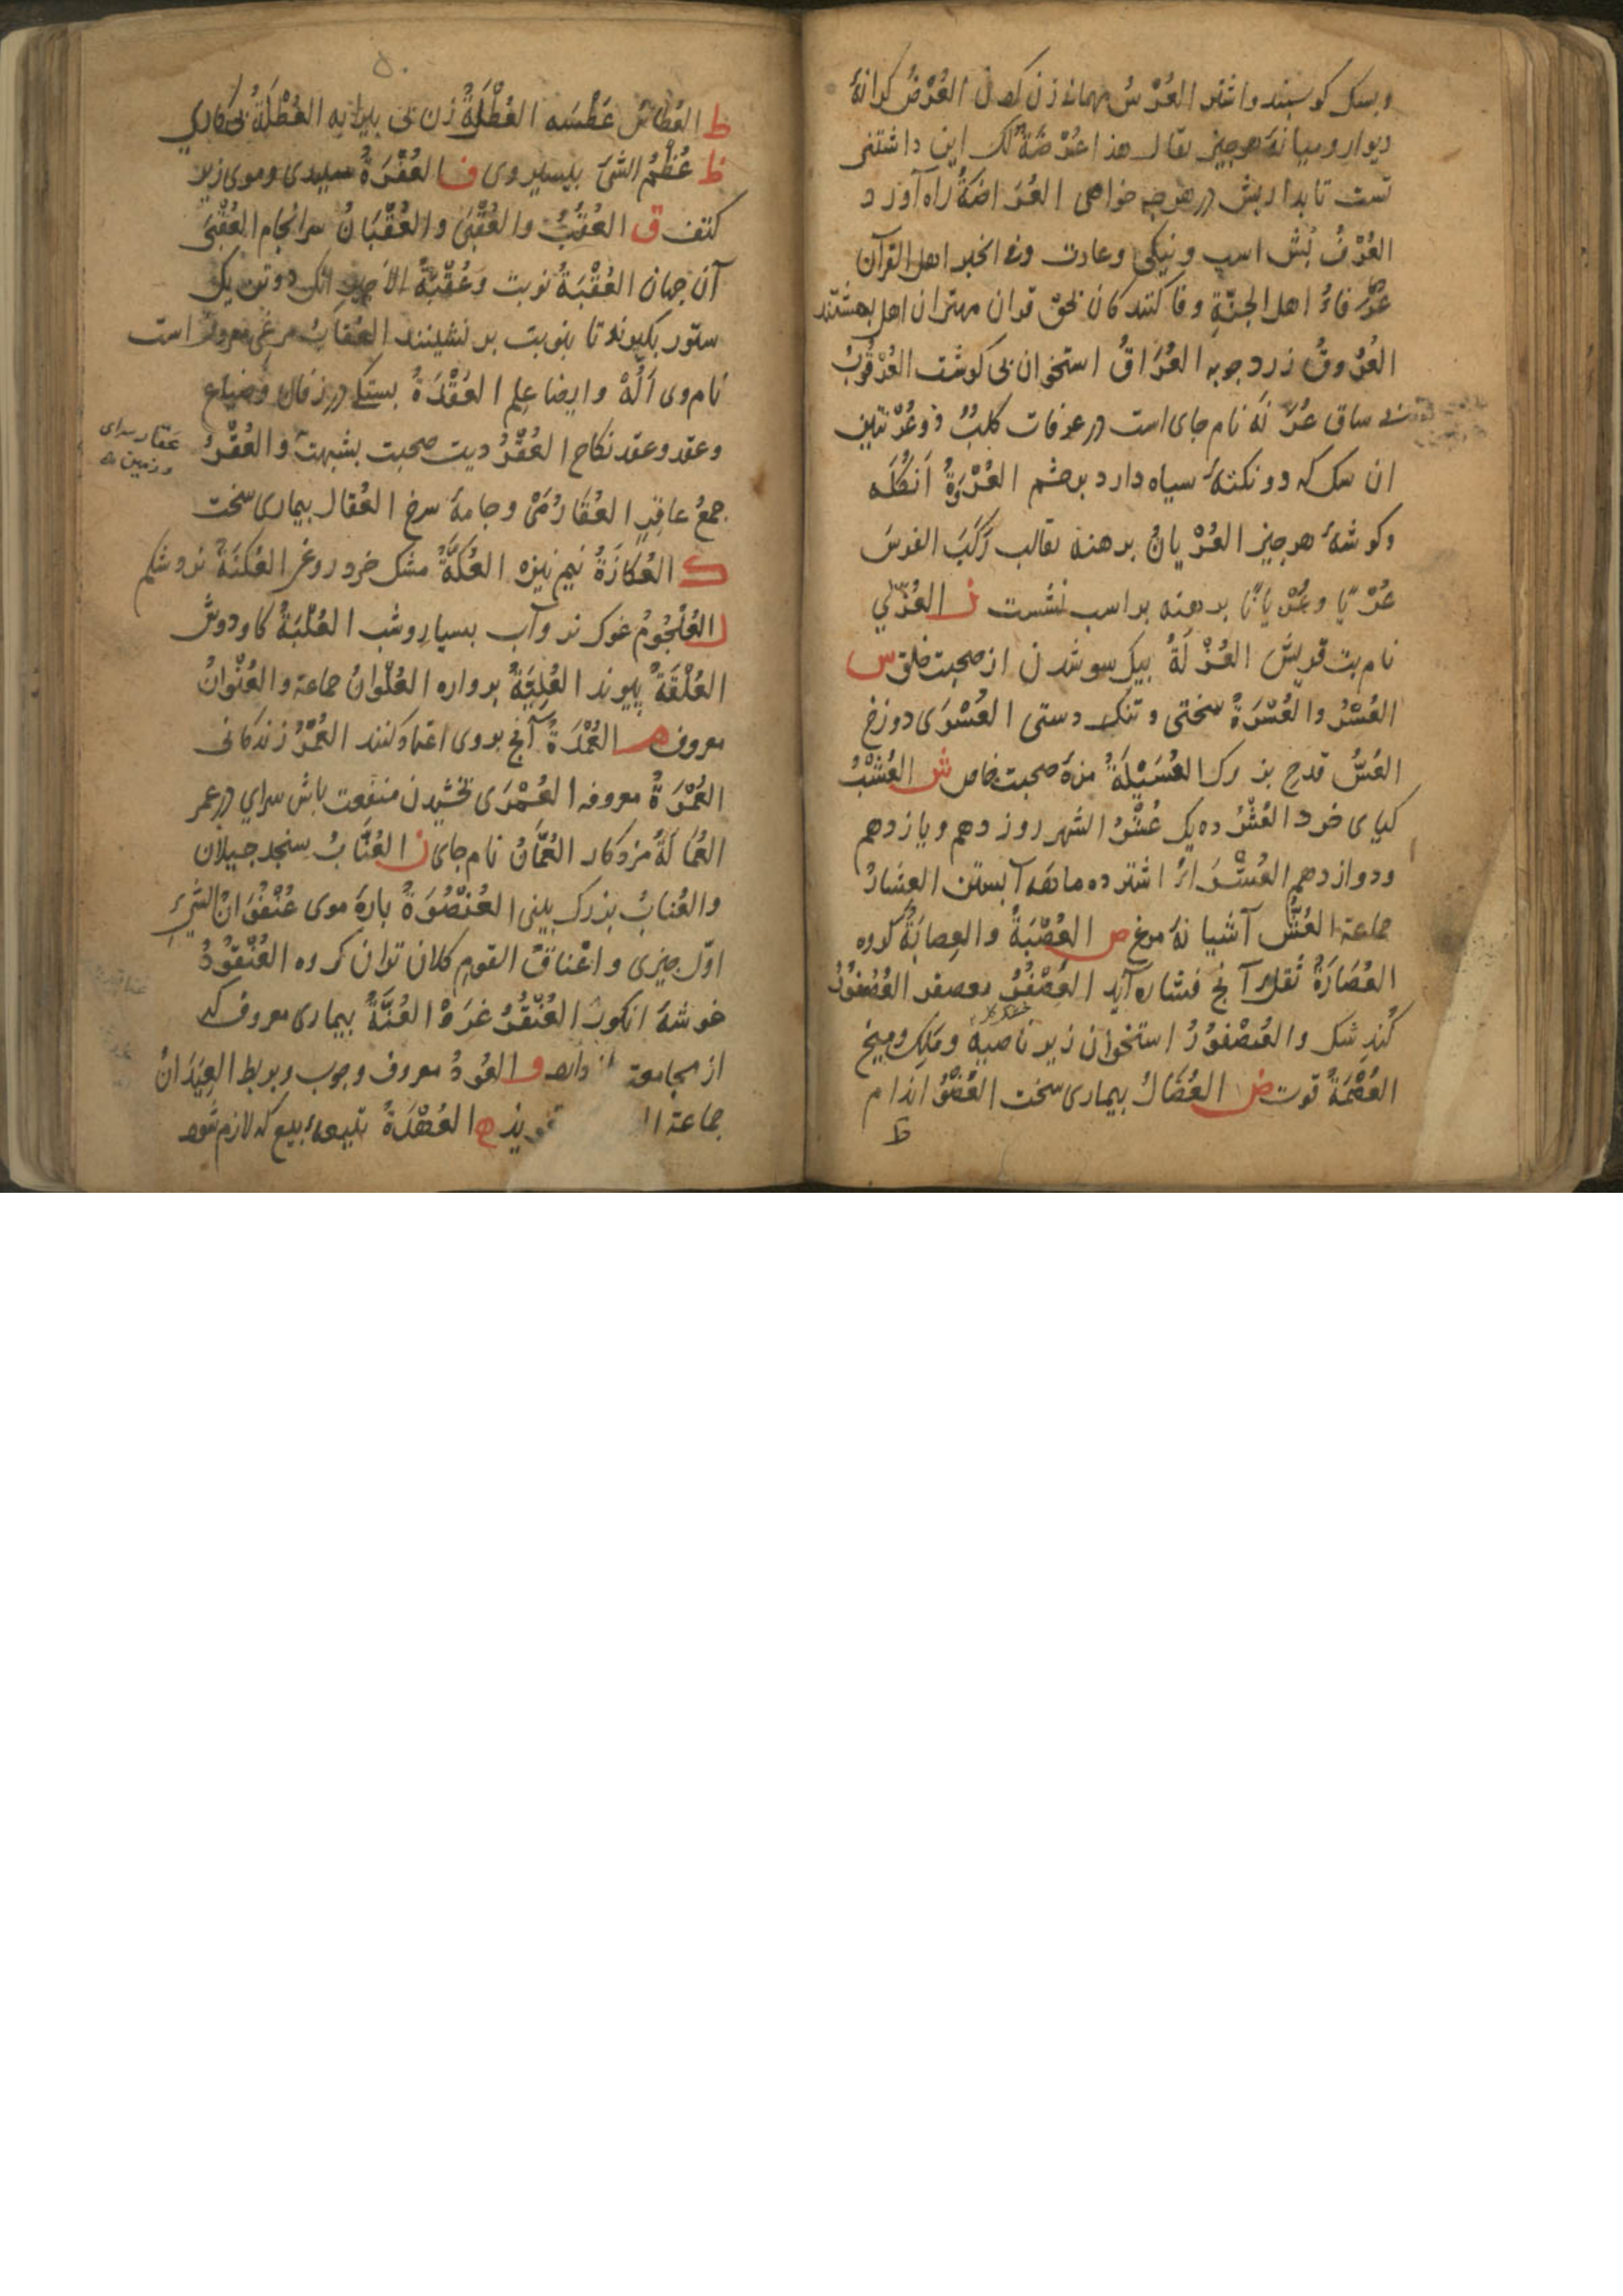 وبسکل کوسبند واشتر العُرْسُ مهمانه زن العُرْضُ کرانهٔ
دیوار ومیانهٔ هرجیز یقال هذا عُرْضَةٌ لک این داشتنی
تست تا بداریش در هرچه خواهی العُرَاضَةُ راه آورد
العُرْفُ بُش اسب ونیکی وعادت وفی الخبر اهل القرآن
عُرَفاءُ اهل الجنّةِ وفا کنندکان بحق قران مهتران اهل بهشتند
العُرُوقُ زردجوبه العُرَاقُ استخوان بی کوشت العُرْقُوبُ
ساق عُرَنَه نام جای است در عرفات کلبٌ ذو عُرْنتین
ان سک که دو نکتهٔ سیاه دارد برجشم العُرْوَةُ اَنکُلَه
وکوشهٔ هرجیز العُرْیانُ برهنه یقال رَکَبَ الفرسَ
عُرْیًا وعُرْیانًا برهنه بر اسب نشست ز العُزّي
نام بت قریش العُزْلَةُ بیک سو شدن از صحبت خلق س
العُسْرُ والعُسْرَةُ سختی وتنک دستی العُسْرَی دوزخ
العُسُّ قدح بزرک العُسَیْلَةُ مزهٔ صحبت خاص ش العُشْبُ
کیای خرد العُشْرُ ده یک عُشْرُ الشهر روز دهم ویازدهم
ودوازدهم العُشَرَاءُ اشتر ده ماهه آبستن العِشارُ
جماعة العُشُّ آشیانهٔ مرغ ص العُصْبَةُ والعِصابَةُ کروه
العُصَارَةُ ثقل آنج فشاره آید العُصْفُرُ معصفر العُصْفُوْرُ
کُنجِشک والعُصْفوْرُ استخوان زیر ناصیه ومَلِک ومیخ
العُصْمَةُ قوت ض العُضَالُ بیماری سخت العُضْوُ اندام
ط
۵۰
ط العُطَاسُ عَطْسَه العُطْلَةُ زن بی پیرایه العُطْلَةُ بی کاری
ظ عُظْمُ الشیَٔ بیشتر وی ف العُفْرَةُ سبیدی وموی زیر
کتف ق العُقْبُ والعُقْبَی والعُقْبَانُ سرانجام العُقْبَی
آن جهان العُقْبَةُ نوبت وعُقْبَةُ الأجیر انک دو تن یک
ستور بکیرند تا بنوبت برنشینند العُقابُ مرغی معروف است
نام وی اَلُهْ وایضا عِلم العُقْدَةُ بستکی در زفان وضیاع
وعقد وعقد نکاح العُقْرُ دیت صحبت بشبهت والعُقْرُ
عَقار سرای
وزمین
جمعُ عاقِرٍ العُقَارُ مَیْ وجامهٔ سرخ العُقال بیماری سخت
ک العُکازَةُ نیم نیزه العُکَّةُ مشک خرد روغن العُکنَةُ نَورد شکم
ل العُلْجُوْمُ غوک نر وآب بسیار وشب العُلْبَةُ کاودوش
العُلْقَةُ پیوند العُلِّیَّةُ برواره العُلْوانُ جماعة والعُنْوانُ
معروف م العُمْدَةُ آنج بروی اعتماد کنند العُمْرُ زندکانی
العُمْرَةُ معروفه العُمْرَی بخشیدن منفعت باش سرای در عمر
العُمَالَةُ مزدکار العُمَانُ نام جای ن العُنَّابُ سنجد جیلان
والعُنابُ بزرک بینی العُنْصُوَةُ بارهٔ موی عُنْفُوَانُ الشیءِ
اوّل جیزی واعْناقُ القوم کلان تران کروه العُنْقُوْدُ
خوشهٔ انکور العُنْقُرُ غَرَوْ العُنَّةُ بیماری معروف که
از مجامعة و العُوْدُ معروف وجوب وبربط العِیْدَانُ
جماعة ه العُهْدَةُ تبیعهٔ بیع که لازم شود